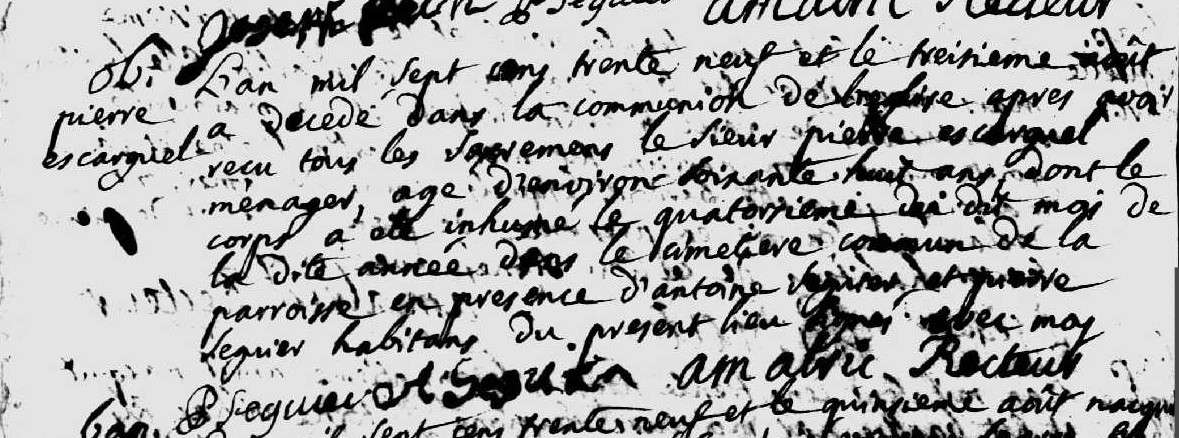 Joseph P Seguier amalric Recteur
obi L'an mil sept cens trente neuf et le treisieme août
pierre a decedé dans la communion de l'eglise apres avoir
escarguel recu tous les sacremens le sieur pierre escarguel
ménager, agé d'environ soixante huit ans, dont le
corps a eté inhumé le quatorsieme du dit mois de
la dite année dans le cimetiere commun de la
parroisse en presence d'antoine seguier et pierre
seguier habitans du present lieu signés avec moy
P Seguier A Seguier amalric Recteur
sept cens trente neuf et le quinsieme août naqui